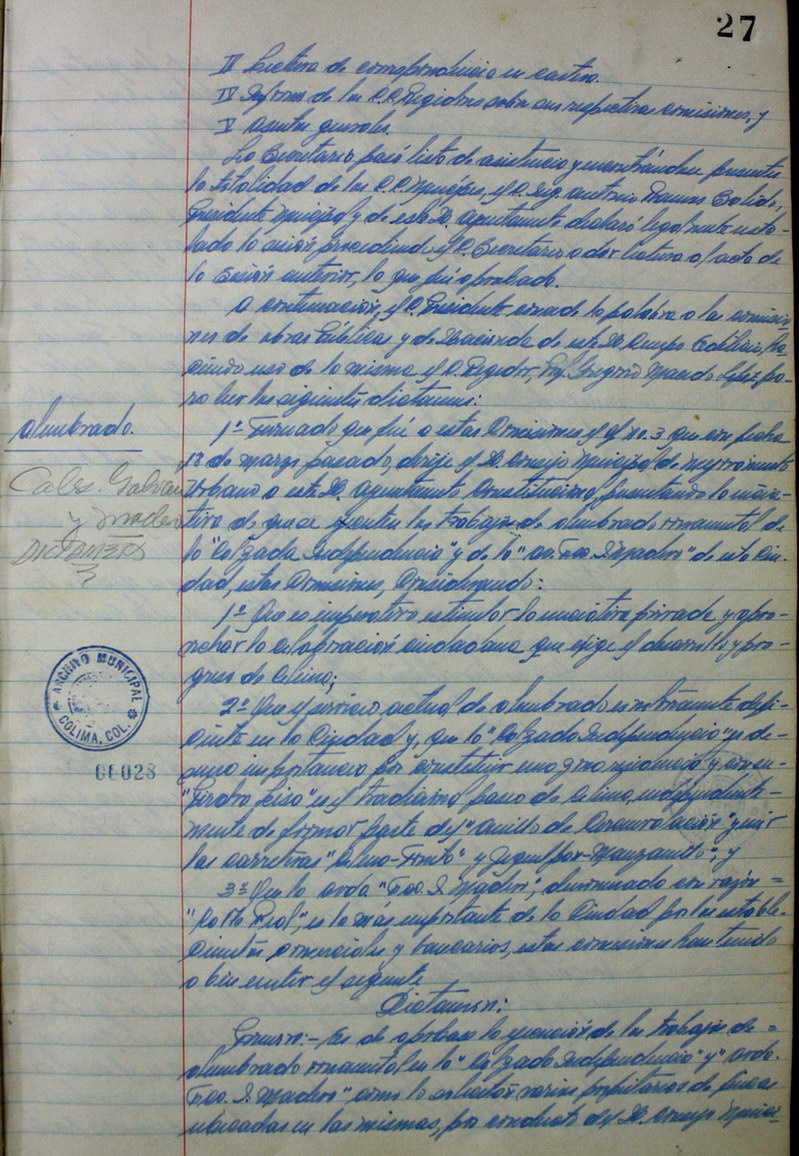 27
III Lectura de correspondencia en cartera.
IV Informe de los C.C. Regidores sobre sus respectivas comisiones, y
V Asuntos generales.
El C. Secretario pasó lista de asistencia y encontrándose presente
la totalidad de los C.C. Munícipes, el C. Ing. Antonio Ramos Salido,
Presidente Municipal y de este H. Ayuntamiento declaró legalmente insta-
lada la sesión procediendo el C. Secretario a dar lectura al acta de
la sesión anterior, la que fué aprobada.
A continuación, el C. Presidente concede la palabra a las comisio-
nes de obras Públicas y de Hacienda de este H. Cuerpo Edilicio, ha-
ciendo uso de la misma el C. Regidor, Prof. Gregorio Macedo López pa-
ra leer los siguientes dictámenes:
Alumbrado.
Calz. Galván
y Madero
DICTAMEN
1º Turnado que fué a estas Comisiones el of. no. 3 que con fecha
13 de marzo pasado, dirige el H. Consejo Municipal de Mejoramiento
Urbano a este H. Ayuntamiento Constitucional, presentando la inicia-
tiva de que se ejecuten los trabajos de alumbrado ornamental de
la "Calzada Independencia" y de la "av. Fco. I. Madero" de esta Ciu-
dad, estas Comisiones, Considerando:
1º Que es imperativo estimular la iniciativa privada y apro-
vechar la colaboración ciudadana que exige el desarrollo y pro-
greso de Colima;
2º Que el servicio actual de alumbrado es notoriamente defi-
ciente en la Ciudad y, que la "Calzada Independencia" es de
suma importancia por constituir una zona
es el tradicional paseo de Colima, independiente-
mente de formar parte del "Anillo de Circunvalación" y unir
las carreteras "Colima-Tonila" y Jiquilpan-Manzanillo"; y
3º Que la avda "Fco. I. Madero", denominada con razón
"Calle Real", es la más importante de la Ciudad por los estable-
cimientos comerciales y bancarios, estas comisiones han tenido
a bien emitir el siguiente
Dictamen:
Primero:- Es de aprobarse la ejecución de los trabajos de
alumbrado ornamental en la "Calzada Independencia" y "avda.
Fco. I. Madero" como lo solicitan varios propietarios de fincas
ubicadas en las mismas, por conducto del H. Consejo Munici-
ARCHIVO MUNICIPAL
COLIMA, COL.
00028